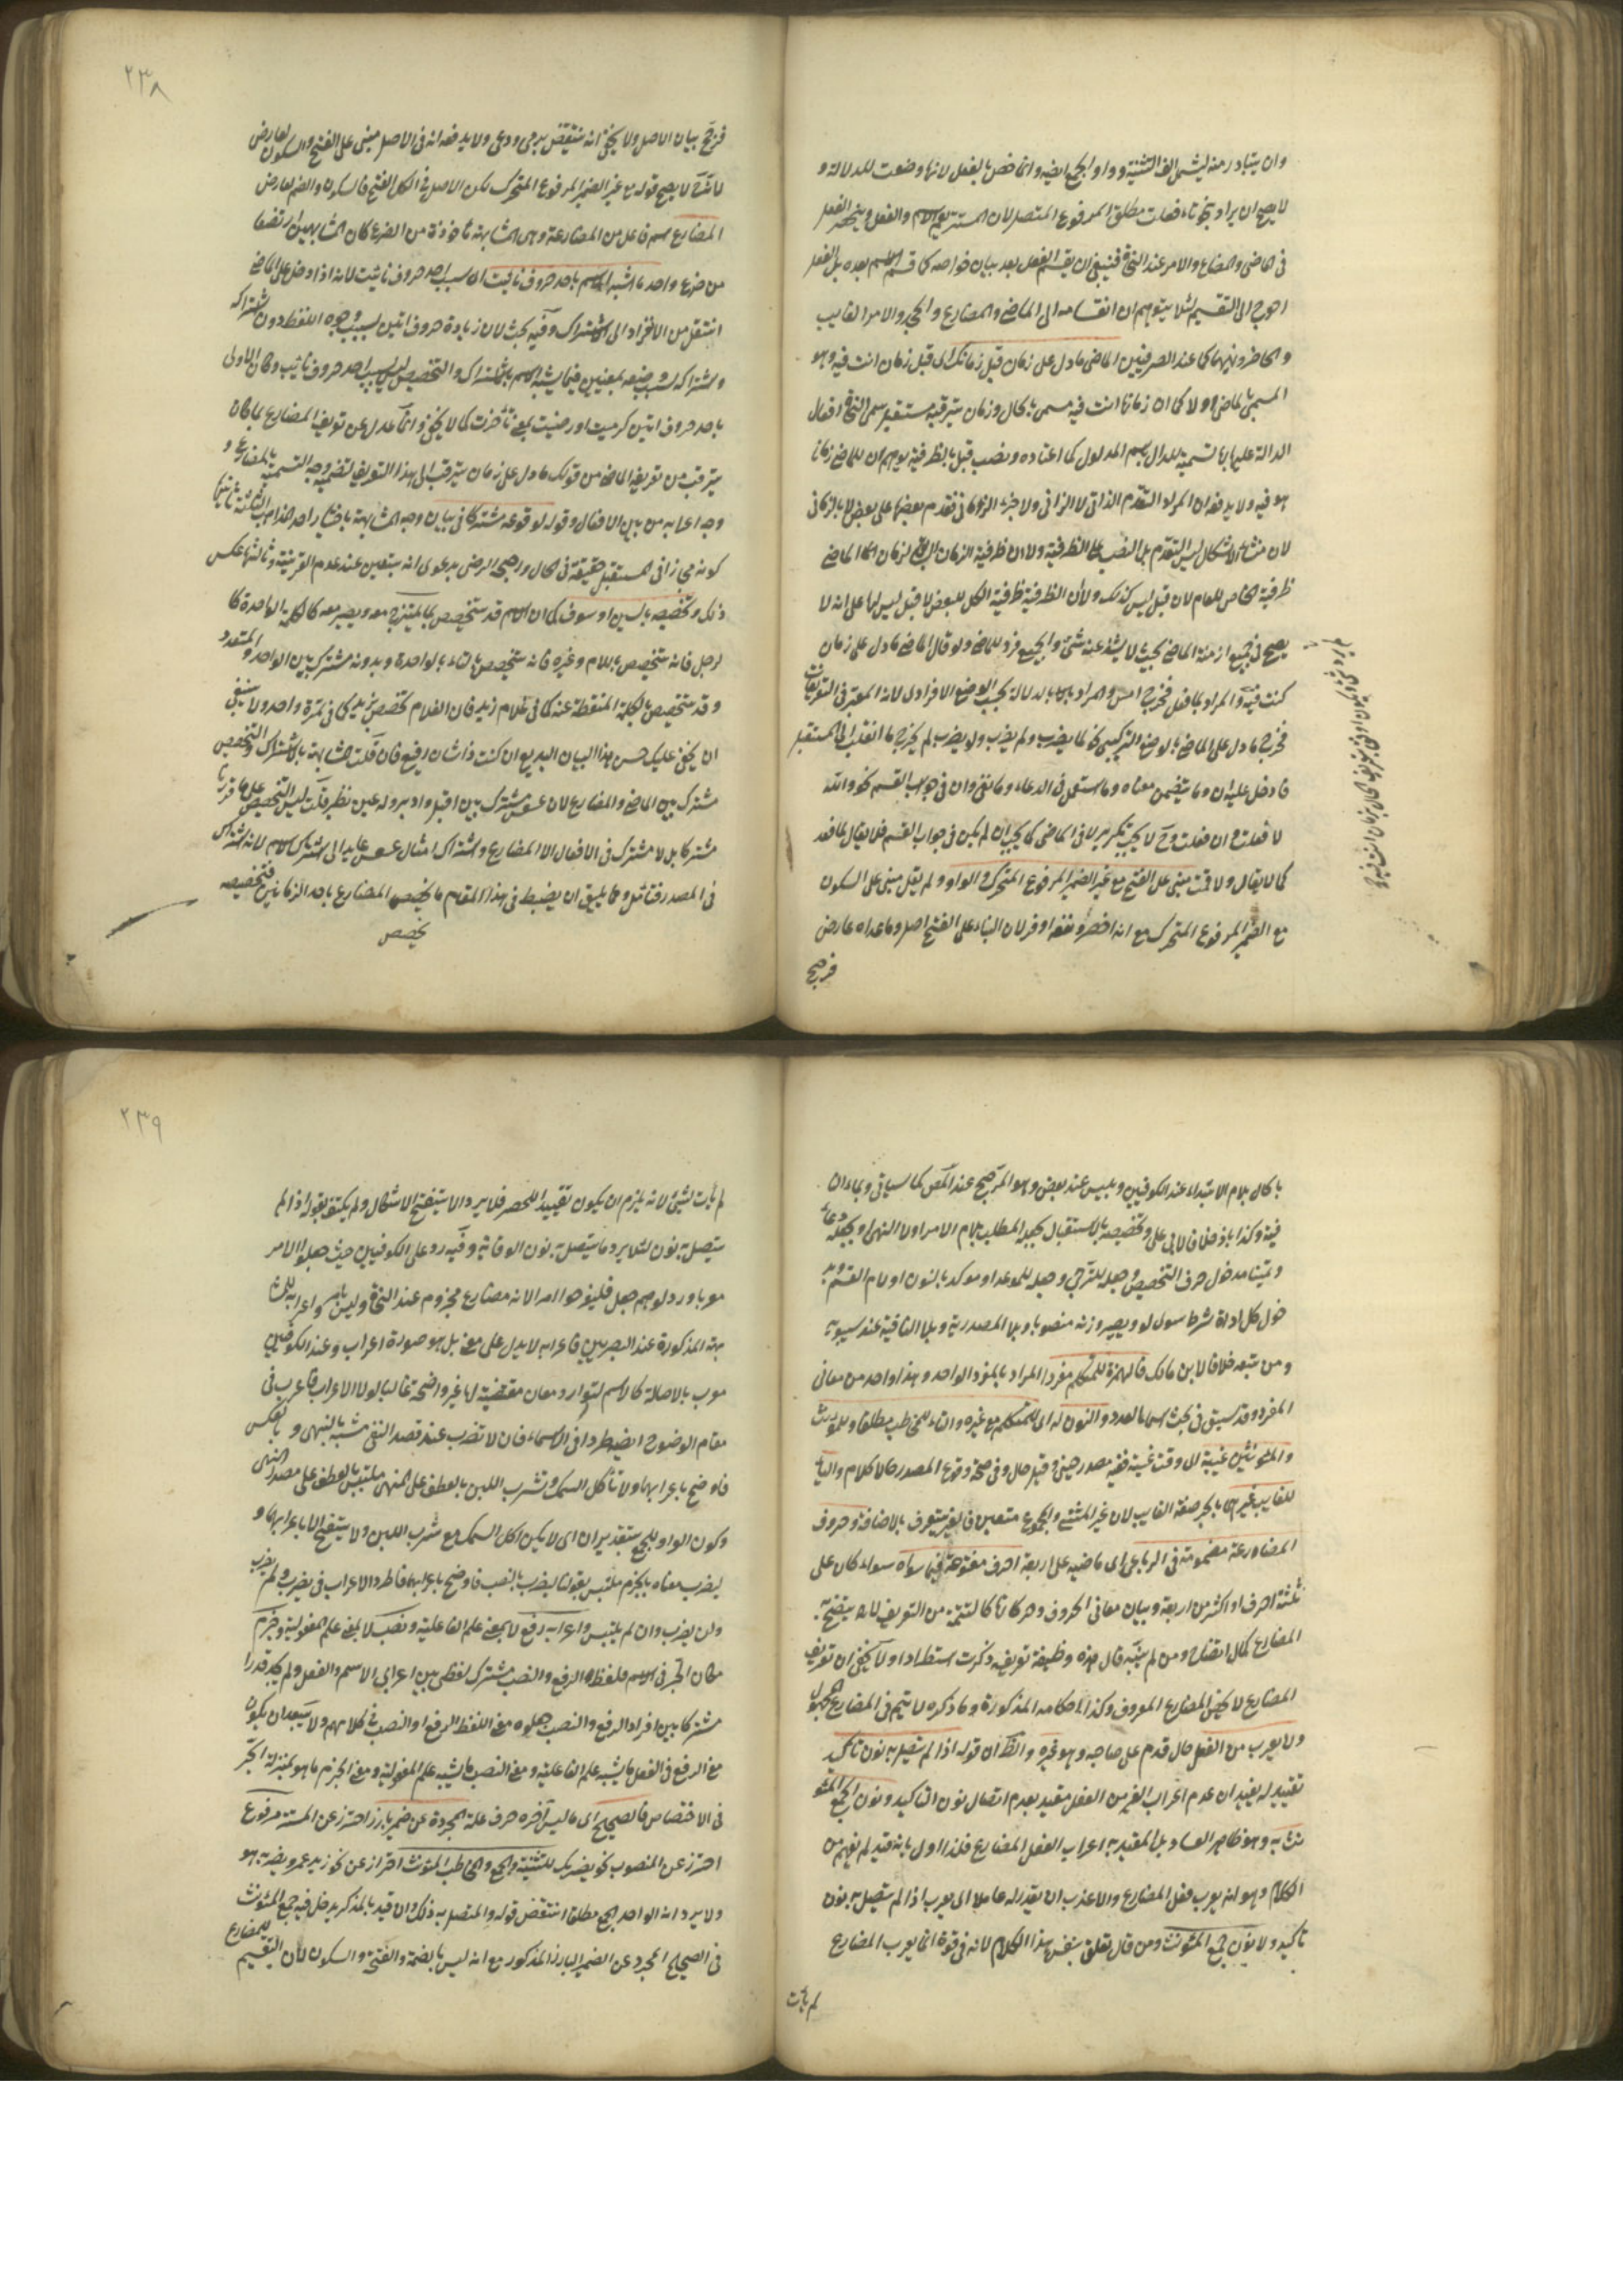 وان يتبادر منه ليشمل الف التثنية وواو الجمع ايضا وانما خص بالفعل لانها وضعت للدلالة و
لا يصح ان يراد بنحو تاء فعلت مطلق المرفوع المتصل لان المستتر يعم الاسم والفعل وينحصر الفعل
في الماضي والمضارع والامر عند النحاة فينبغي ان يقسم الفعل بعد بيان خواصه كما قسم الاسم بعده بل الفعل
احوج الى التقسيم لئلا يتوهم ان انقسامه الى الماضي والمضارع والجحد والامر الغايب
والحاضر ونهيهما كما عند الصرفيين الماضي ما دل على زمان قبل زمانك اي قبل زمان انت فيه وهو
المسمى بالماضي اولا كما ان زمانا انت فيه مسمى بالحال وزمان تترقبه مستقبل سمى النحاة افعال
الدالة عليها بها تسمية للدال باسم المدلول كما اعتاده ونصب قبل بالظرفية يوهم ان للماضي زمانا
هو فيه ولا يدفعه ان المراد التقدم الذاتي لا الزماني ولا جزء الزمان تقدم بعضها على بعض لا بالزماني
لان منشاء الاشكال ليس التقدم بل النصب على الظرفية ولا ان ظرفية الزمان لزمان الماضي
ظرفية الخاص للعام لان قبل ليس كذلك ولا ان الظرفية ظرفية الكل للبعض لا قبل ليس لها على انه لا
يصح في جميع ازمنة الماضي بحيث لا يشذ عنه شيء والجميع فرد للماضي ولو قال الماضي ما دل على زمان
كنت فيه والمراد بما فعل فخرج امس والمراد بالدلالة بحسب الوضع الافرادي لانه المعتبر في التعريفات
فخرج ما دل على الماضي بالوضع التركيبي نحو لما يضرب ولم يضرب ولو يضرب لم يخرج ما انقلب الى المستقبل
ما دخل عليه ان وما يتضمن معناه وما استعمل في الدعاء وما نفي وان في جواب القسم نحو والله
لا فعلت وان فعلت وح لا يجب تكرير لا في الماضي كما يجب ان لم يكن في جواب القسم فلا يقال لا قعد
كما لا يقال ولا قمت مبني على الفتح مع غير الضمير المرفوع المتحرك والواو ولم يقل مبني على السكون
مع الضمير المرفوع المتحرك مع انه اخصر ونفعه اوفر لان البناء على الفتح اصل وما عداه عارض
فرجح
٢٣٨
فرجح بيان الاصل ولا يخفى انه ينتقض برمى ودعى ولا يدفعه انه في الاصل مبني على الفتح والسكون لعارض
لانه ح لا يصح قوله مع غير الضمير المرفوع المتحرك لكن الاصل في الكل الفتح فالسكون والضم لعارض
المضارع اسم فاعل من المضارعة وهي المشابهة ماخوذة من الضرع كان المشابهين ارتضعا
من ضرع واحد ما اشبه الاسم باحد حروف نايت اي بسبب احد حروف نايت لانه اذا دخل على الماضي
انتقل من الانفراد الى الاشتراك وفيه بحث لان زيادة حروف اتين لسبب وجوه اللفظ دون اشتراكه
واشتراكه بسبب وضعه لمعنيين فيما يشبه الاسم باشتراك والتخصيص ليس بسبب احد حروف نايت وكان الاولى
باحد حروف اتين كرميت اورضيت بمعنى تأخرت كما لا يخفى وانما عدل عن تعريف المضارع بما كان
يترقب من تعريف الماضي من قولك ما دل على زمان يترقب الى هذا التعريف لتضمنه وجه التسمية بالمضارع و
وجه اعرابه من بين الافعال وقوله لوقوعه مشتركا في بيان وجه المشابهة باختيار احد المذاهب الثلثة ثانيها
كونه مجازا في المستقبل حقيقة في الحال ورجحه الرضي بدعوى انه يتعين عند عدم القرينة وثالثها عكس
ذلك وتخصيصه بالسين او سوف كما ان الاسم قد يتخصص بما يمتزج معه ويصير معه كالكلمة الواحدة كا
لرجل فانه يتخصص باللام وغيره فانه يتخصص بالتاء بالواحدة وبدونه مشترك بين الواحد والمتعدد
وقد يتخصص بالكلمة المنقطعة عنه كما في غلام زيد فان الغلام تخصص بزيد كما في تمرة واحد ولا ينبغي
ان يخفى عليك حسن هذا البيان البديع ان كنت ذا شان رفيع فان قلت المشابهة بالاشتراك والتخصيص
مشترك بين الماضي والمضارع لان عسعس مشترك بين اقبل وادبر وله عين نظير قلت ليس التخصيص على ما قررنا
مشتركا بل لا مشترك في الافعال الا المضارع واشتراك امثال عسعس عايد الى اشتراك الاسم لانه اشتراك
في المصدر فتأمل ومما يليق ان يضبط في هذا المقام ما يخصص المضارع باحد الزمانين فتخصيصه
يخصص
بالحال بلام الابتداء عند الكوفيين وبليس عند بعض وهو المرجح عند المص كما سياتي وبما وان
فيه وكذا باذ خلافا لابي علي وتخصيصه بالاستقبال بجعله للطلب بلام الامر اولا النهي او بجعله دعاء
وتمنيا مدخول حرف التخصيص وجعله للترجي وجعله للموعد او موكدا بالنون او لام القسم وبد
خول كل اداة شرط سوى لو وبصيرورته منصوبا وبما المصدرية وبلا النافية عند سيبويه
ومن تبعه خلافا لابن مالك فالهمزة للمتكلم مفردا المراد بالمفرد الواحد وهذا واحد من معاني
المفرد وقد سبق في بحث اسماء العدد والنون له اي للمتكلم مع غيره والتاء للمخاطب مطلقا وللمؤنث
والمؤنثين غيبة اي وقت غيبة ففيه مصدر حيني وقيل حال وفي صحة وقوع المصدر حالا كلام والياء
للغايب غيرهما بالجر صفة الغايب لان غير المثنى والمجموع متعين فالغير يتعرف بالاضافة وحروف
المضارعة مضمومة في الرباعي اي ماضيه على اربعة احرف مفتوحة فيما سواه سواء كان على
ثلثة احرف او اكثر من اربعة وبيان معاني الحروف وحركاتها كالتتمة من التعريف لانه يتضح به
المضارع كمال اتضاح ومن لم ينتبه قال هذه وظيفة تعريفه ذكرت استطرادا ولا يخفى ان تعريف
المضارع لا يخص المضارع المعروف وكذا احكامه المذكورة وما ذكره لا يتم في المضارع المجهول
ولا يعرب من الفعل حال قدم على صاحبه وهو غيره والظ ان قوله اذا لم يتصل به نون تاكيد
تقييد له يفيد ان عدم اعراب الغير من الفعل مقيد بعدم اتصال نون التاكيد ونون الجمع المؤ
نث به وهو ظاهر الفساد بل المقيد به اعراب الفعل المضارع فلذا اول بانه قيد لم يفهم من
الكلام وهو انه يعرب فعل المضارع والاعذب ان يقدر له عاملا اي يعرب اذا لم يتصل به نون
تاكيد ولا نون جمع المؤنث ومن قال تعلق بنفس هذا الكلام لانه في قوة انما يعرب المضارع
لم يأت
٢٣٩
لم يأت بشيء لانه يلزم ان يكون تقييدا للحصر فلا يرد الا ستفتح الاشكال ولم يكتف بقوله اذا لم
يتصل به نون لئلا يرد ما يتصل به نون الوقاية وفيه رد على الكوفيين حيث جعلوا الامر
معربا ورد لوهم جعل فليفرحوا امرا لانه مضارع مجزوم عند النحاة وليس بامر واعرابه للمشا
بهة المذكورة عند البصريين فاعرابه لا يدل على معنى بل هو صورة اعراب وعند الكوفيين
معرب بالاصالة كالاسم لتوارد معان مقتضية له غير واضحة غالبا لولا الاعراب فاعرب في
مقام الوضوح ايضا طردا في الاسماء فان لا تضرب عند قصد النفي مشتبه بالنهي وبالعكس
فاوضح باعرابهما ولا تأكل السمك وتشرب اللبن بالعطف على النهي ملتبس بالعطف على مصدر النهي
وكون الواو للجمع بتقدير ان اي لا يكن اكل السمك مع شرب اللبن ولا يتضح الا باعرابهما و
ليضرب معناه بالجزم ملتبس بقولنا ليضرب بالنصب فاوضح باعرابهما فاطرد الاعراب في يضرب ولم يضرب
ولن يضرب وان لم يلتبس واعرابه رفع لا بمعنى علم الفاعلية ونصب لا بمعنى علم المفعولية وجزم
مكان الجر في الاسم فلفظ الرفع والنصب مشترك لفظي بين اعرابي الاسم والفعل ولم يجد قدرا
مشتركا بين افراد الرفع والنصب جعلوه معنى اللفظ الرفع او النصب في كلامهم ولا يبعد ان يكون
معنى الرفع في الفعل ما يشبه علم الفاعلية ومعنى النصب ما يشبه علم المفعولية ومعنى الجزم ما هو بمنزلة الجر
في الاختصاص فالصحيح اي ما ليس آخره حرف علة المجرد عن ضمير بارز احترز عن المستتر مرفوع
احترز عن المنصوب نحو يضربك للتثنية والجمع والمخاطب المؤنث احتراز عن نحو زيد عمرو يضربه هو
ولا يرد انه الواحد الجمع مطلقا انتقض قوله والمتصل به ذلك والا قيد بالمذكر يدخل فيه جمع المؤنث
في الصحيح المجرد عن الضمير البارز المذكور مع انه ليس بالضمة والفتحة والسكون لان التقسيم للمضارع